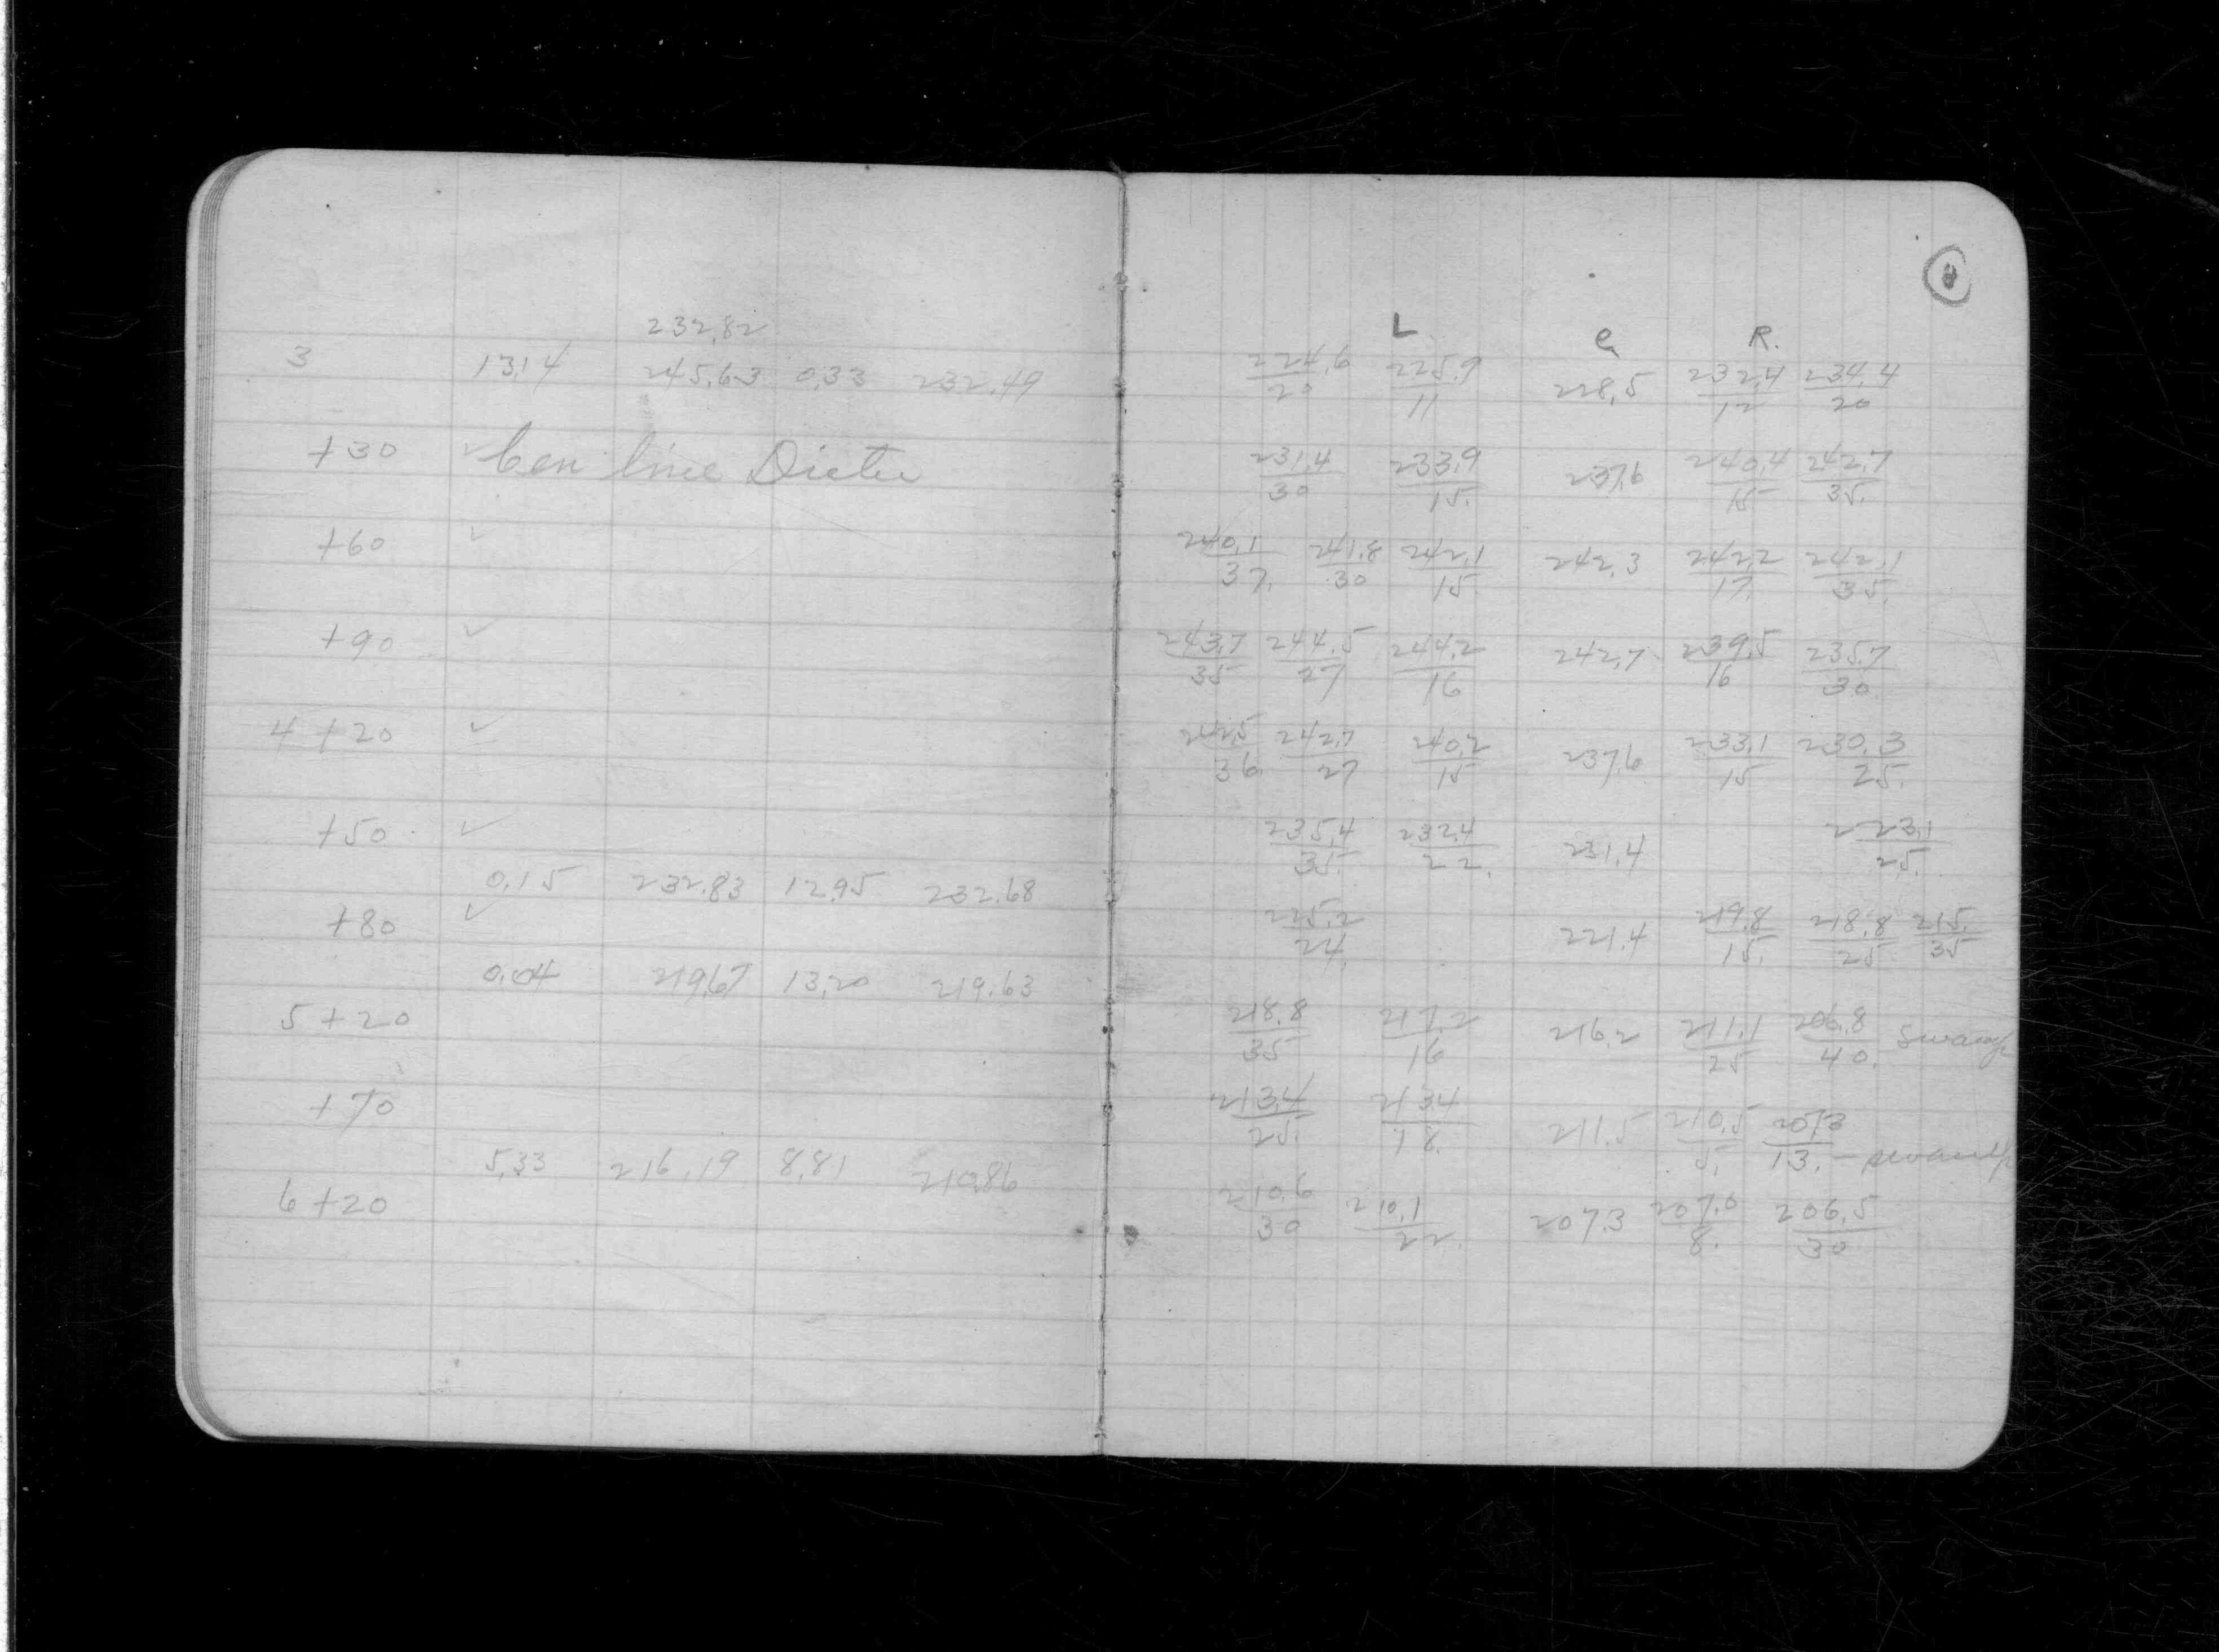 232.82
3 13.14 245.63 0.33 232.49
+30 Cen line
+60 ✓
+90 ✓
4 +20 ✓
+50 ✓
0.15 232.83 12.95 232.68
+80 ✓
0.04 219.67 13.20 219.63
5 +20
+70
5.33 216.19 8.81 210.86
6 +20
L R.
224.6/20 225.9/11 228.5 232.4/12 234.4/20
231.4/30 233.9/15. 237.6 240.4/15 242.7/35.
240.1/37. 241.8/30 242.1/15. 242.3 242.2/17. 242.1/35.
243.7/35 244.5/27 244.2/16 242.7 239.5/16 235.7/30.
242.5/36. 242.7/27 240.2/15 237.6 233.1/15 230.3/25.
235.4/35. 232.4/22. 231.4 223.1/25.
225.2/24. 221.4 219.8/15. 218.8/25 215./35
218.8/35 217.2/16 216.2 211.1/25 206.8/40. Swamp
213.4/25. 213.4/18. 211.5 210.5/5. 207.3/13. - swamp
210.6/30 210.1/22. 207.3 207.0/8. 206.5/30